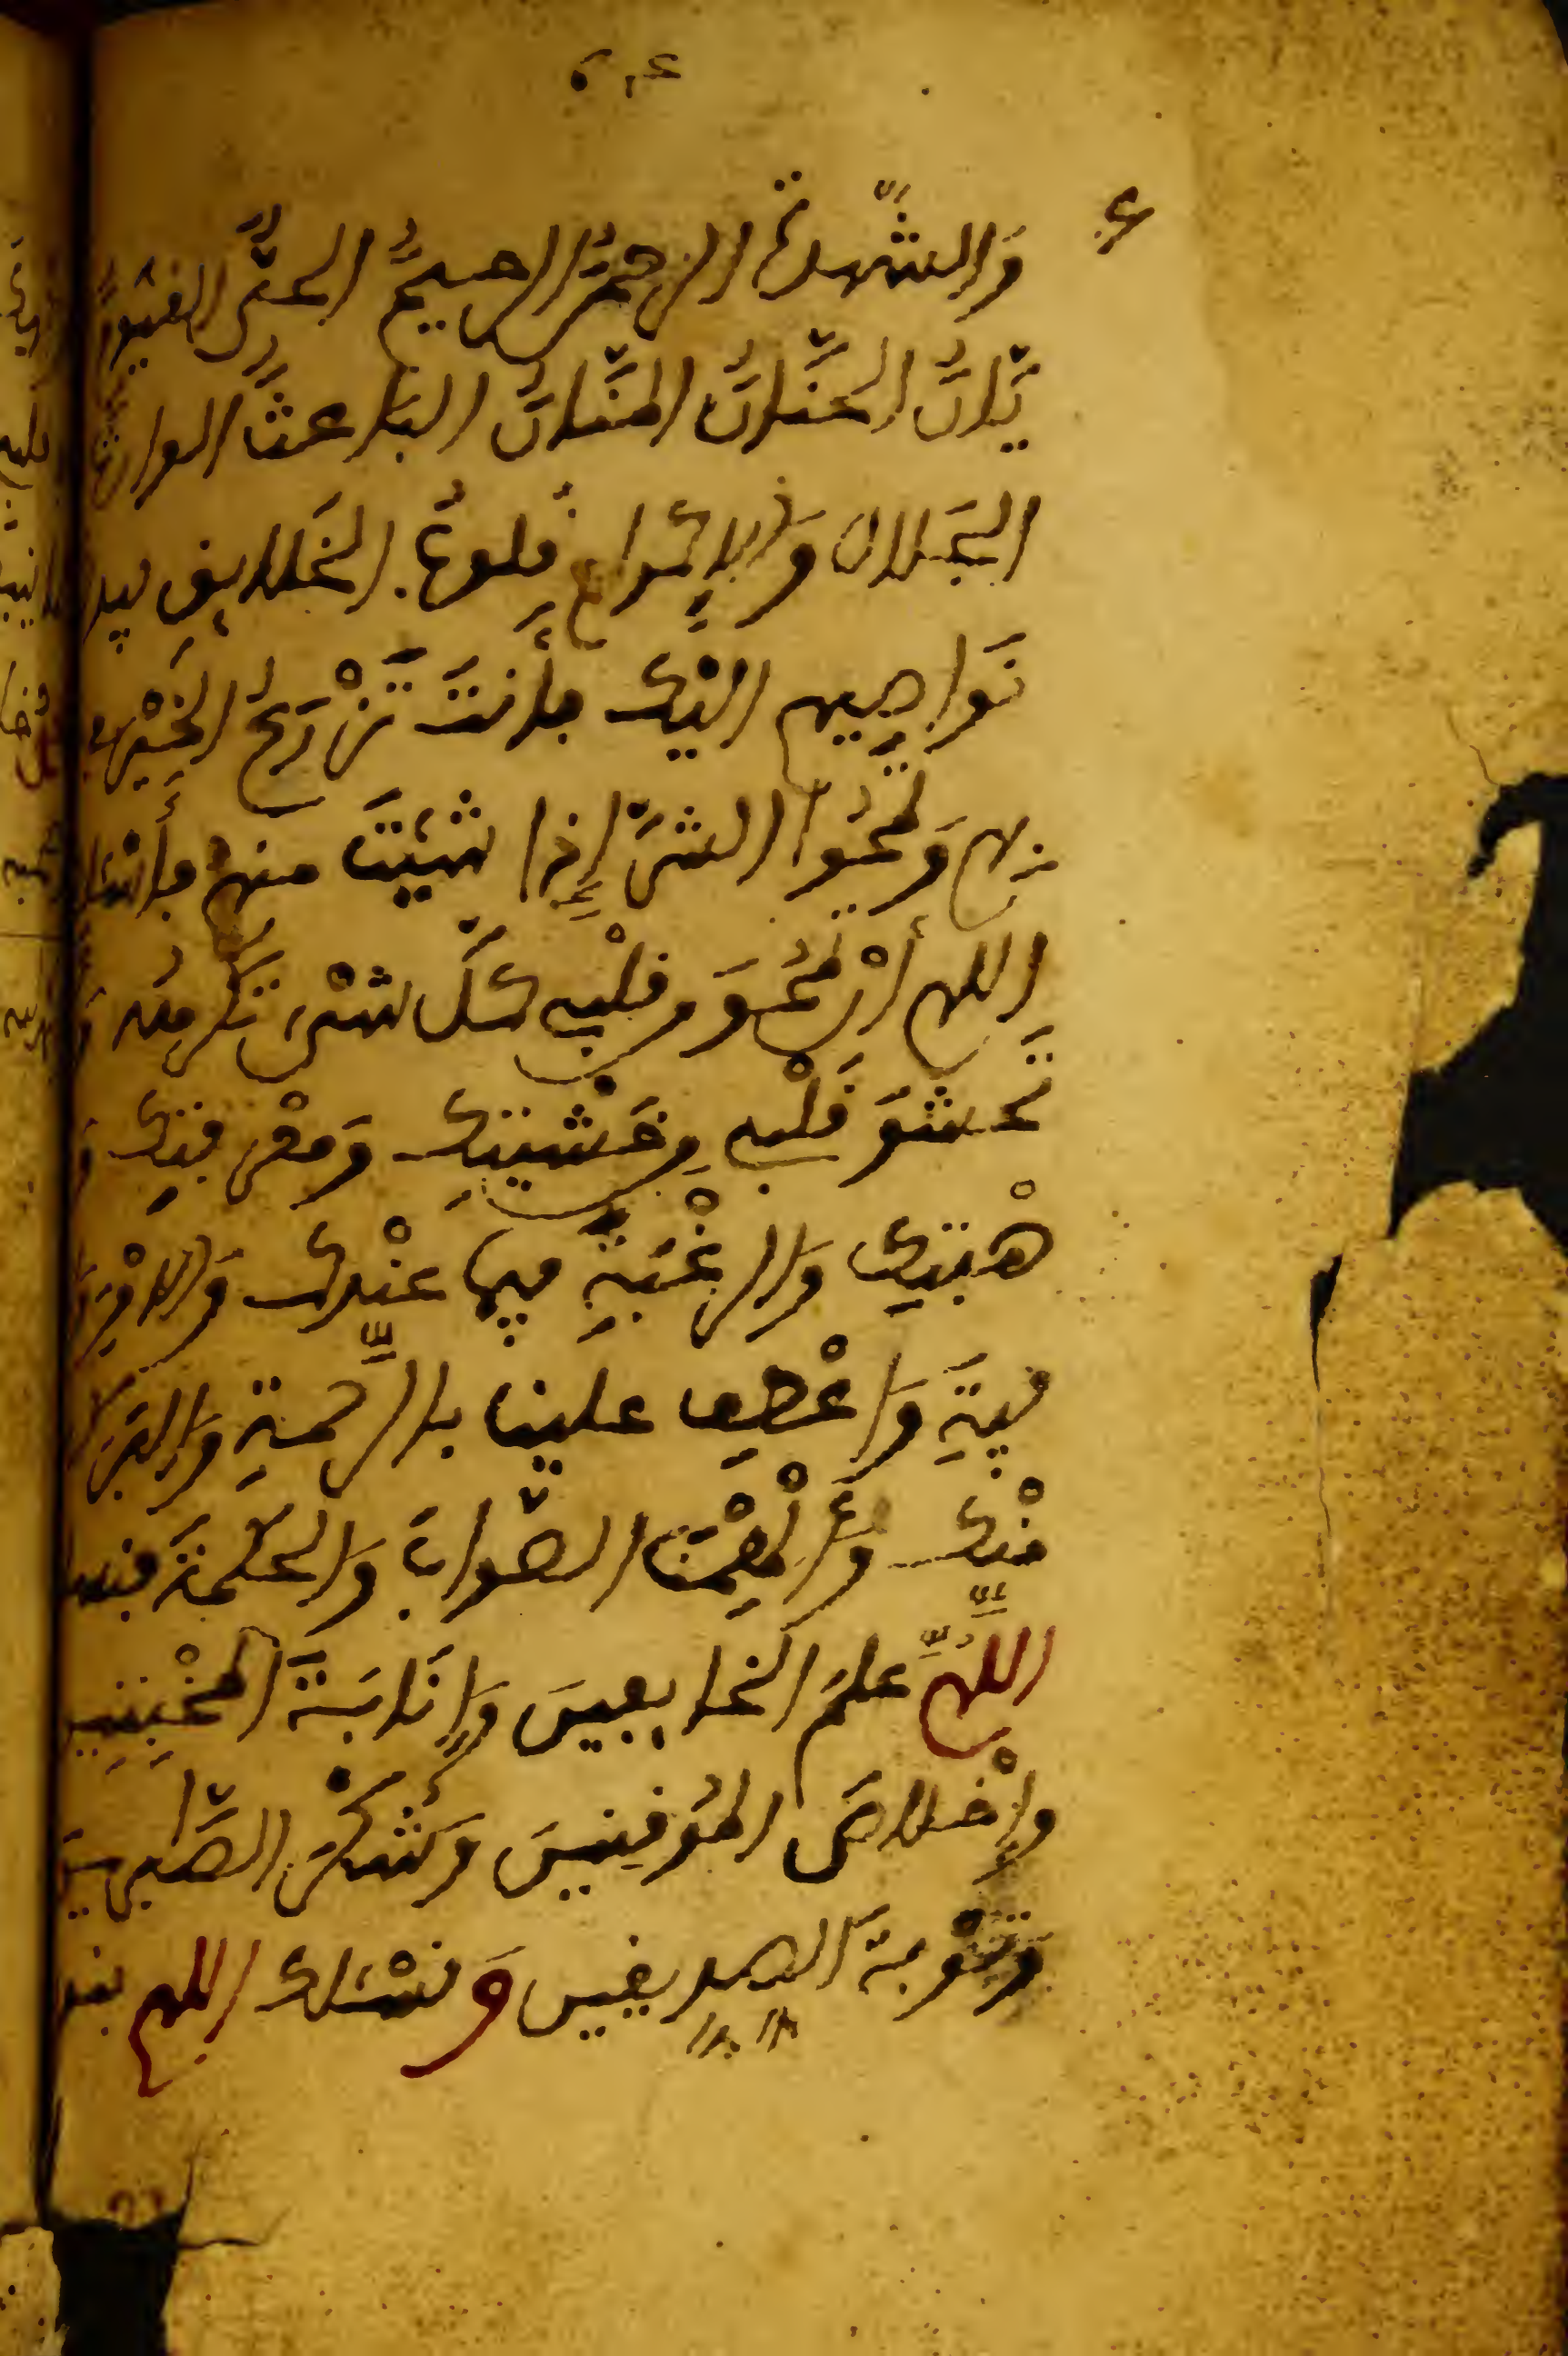 وَالشَّهدة الرحمنُ الرحيمُ الحيُّ القيّومُ
يَّانُ الحنَّانُ المنَّانُ الباعثُ الوارثُ
الجَلال وَالإكرام قلوبُ الخَلايِق بيد
نَواصِيهم اليك فأنتَ تَزْرَعُ الخَيْر
بهم وَتمحُوا الشرَّ إِذا شئتَ منهم فأسئلك
اللهم أن تمحُوَ من قلْبِي كلَّ شيْءٍ تكرهه
تَحشوَ قَلْبي من خَشْيتِك وَمعْرِفتِك
هْبتِك وَالرغْبَةِ فيما عنْدك وَالامْن
فيةِ وَاعْطِف علينا بالرَّحمةِ وَالبركة
منْك وَألْهِمْنا الصَّوابَ وَالحكمةَ فنسئلك
اللَّهُمَّ علمَ الخايفين وَإنَابَةَ المخْبِتِين
وإِخْلاصَ المُوقنِينَ وَشُكْرَ الصَّبرين
وَتَوْبةَ الصديقين وَنسْئلك اللهم بنور